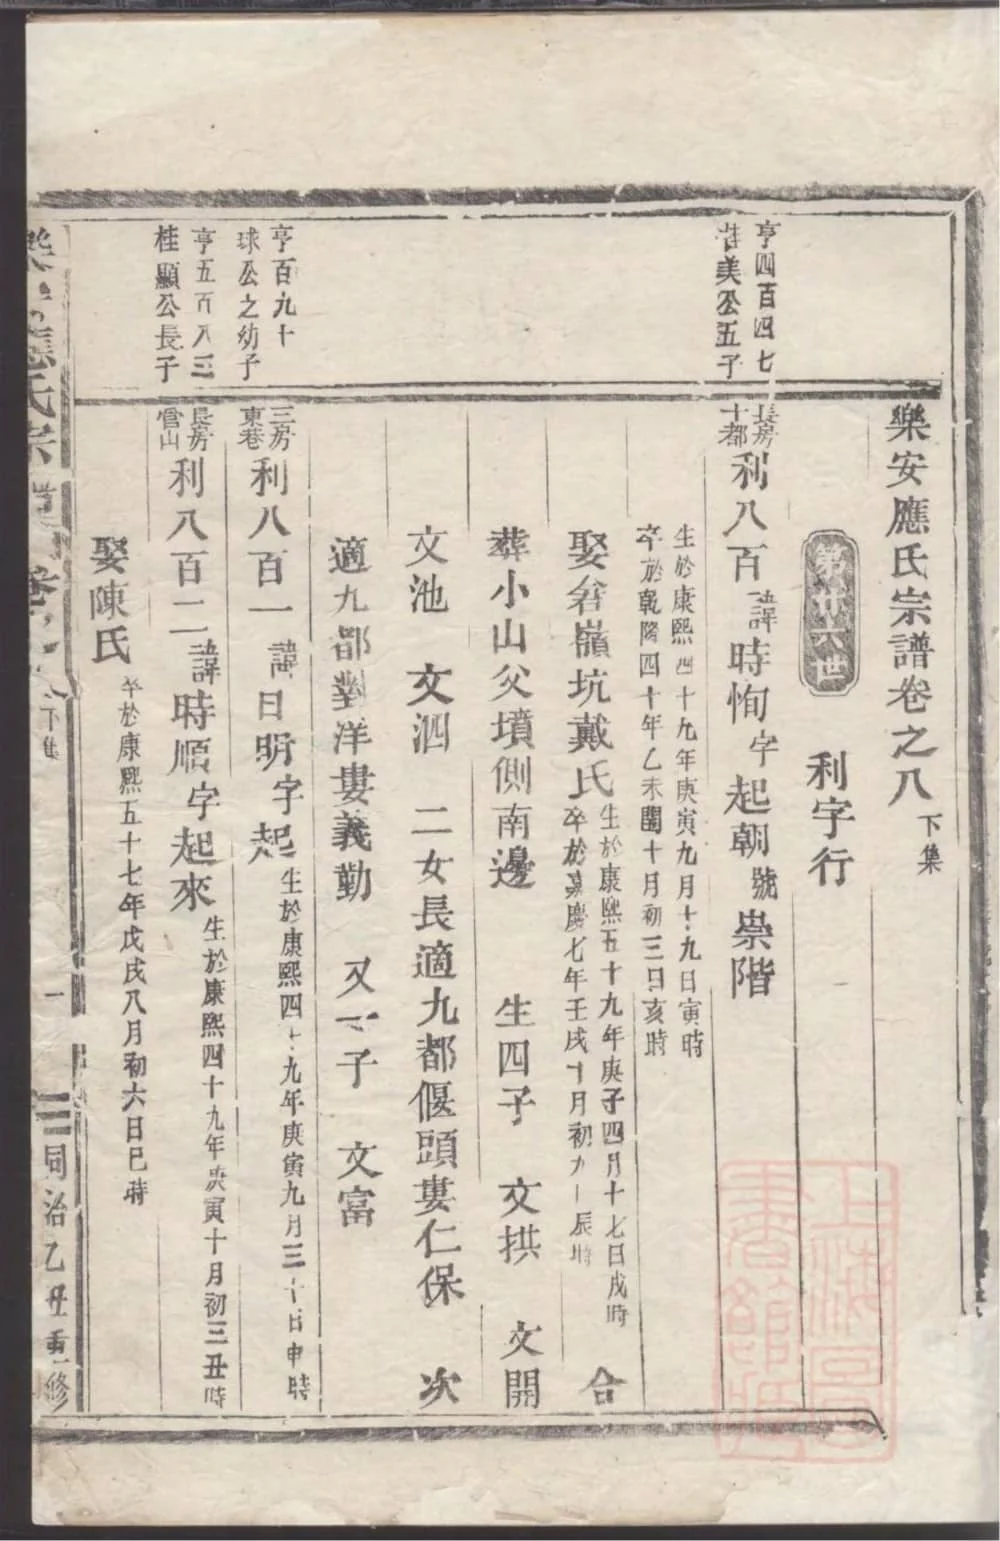 樂安應氏宗譜卷之八 下集
第廿六世 利字行
亨四百四七
美公五子
長房
十都
利八百 諱時恂字起朝號崇階
生於康熙四十九年庚寅九月十九日寅時
卒於乾隆四十年乙未閏十月初三日亥時
娶砦嶺坑戴氏
生於康熙五十九年庚子四月十七日戌時
卒於嘉慶七年壬戌十月初九 辰時
合
葬小山父墳側南邊 生四子 文拱 文開
文池 文泗 二女長適九都偃頭婁仁保 次
適九都對洋婁義勤 又一子 文富
亨百九十
球公之幼子
三房
東巷
利八百一 諱日明字起
生於康熙四十九年庚寅九月三十日申時
亨五百八三
桂顯公長子
長房
管山
利八百二 諱時順字起來
生於康熙四十九年庚寅十月初三丑時
娶陳氏
卒於康熙五十七年戊戌八月初六日巳時
樂安應氏宗譜 卷之八 下集 一 同治乙丑重修
上海圖書館藏